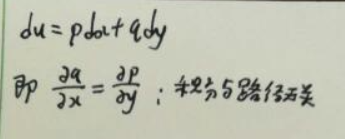 du = pdx + qdy
即 ∂q/∂x = ∂p/∂y ; 积分与路径无关